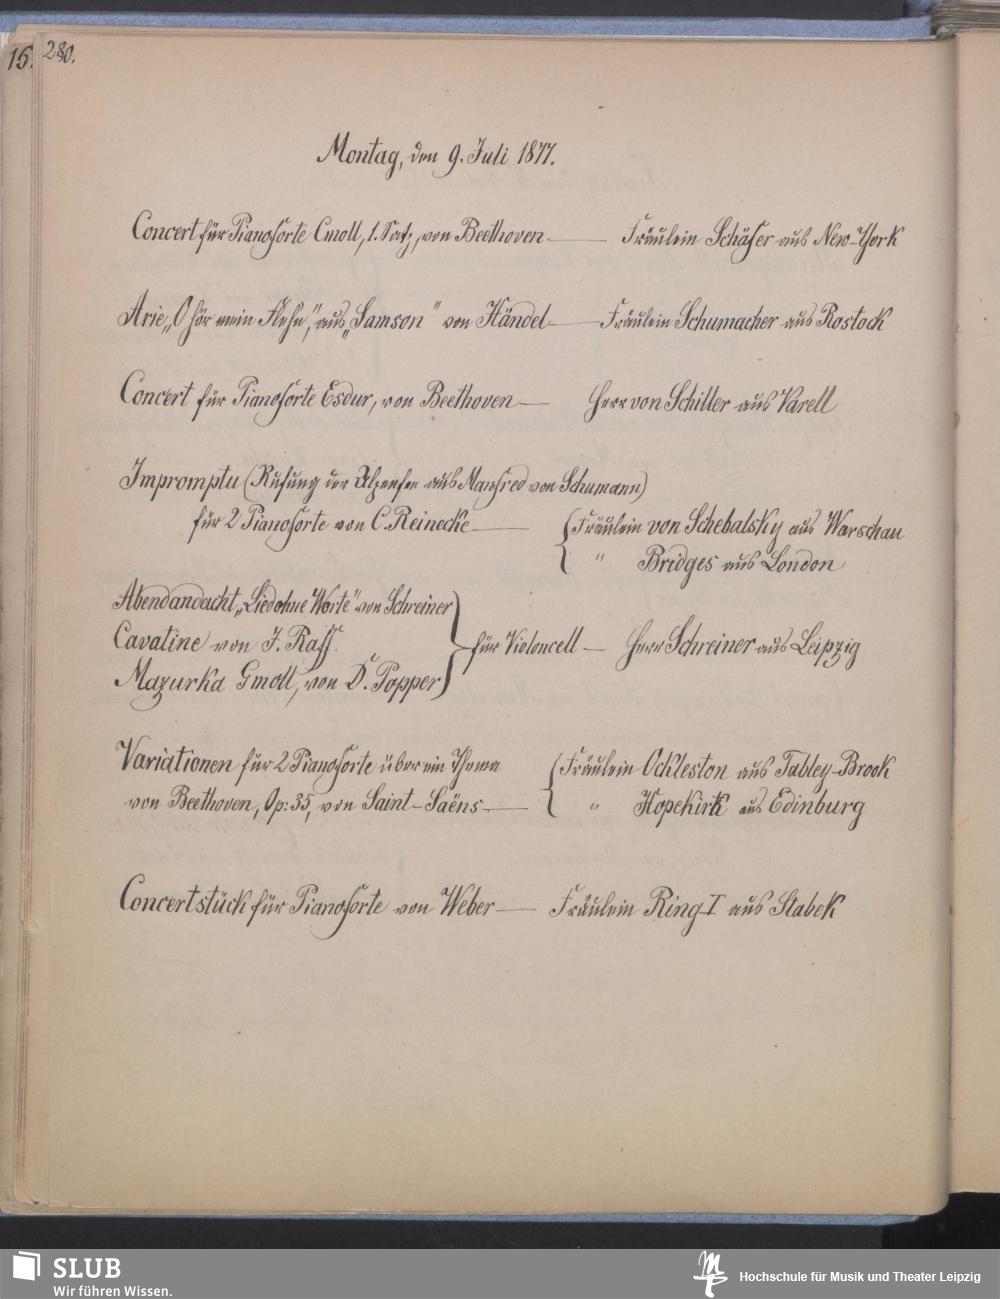 15.
280.
Montag, den 9. Juli 1877.
Concert für Pianoforte Cmoll, 1. Satz, von Beethoven — Fräulein Schäfer aus New-York
Arie „O hör mein Flehn“, aus „Samson“ von Händel — Fräulein Schumacher aus Rostock
Concert für Pianoforte Esdur, von Beethoven — Herr von Schiller aus Varell
Impromptu (Rufung der Alpenfee aus Manfred von Schumann)
für 2 Pianoforte von C. Reinecke — { Fräulein von Schebalsky aus Warschau
„ Bridges aus London
Abendandacht, „Lied ohne Worte“ von Schreiner
Cavatine von J. Raff.
} für Violoncell — Herr Schreiner aus Leipzig
Mazurka Gmoll, von D. Popper
Variationen für 2 Pianoforte über ein Thema { Fräulein Ockleston aus Tabley-Brook
von Beethoven, Op: 35, von Saint-Saëns — „ Hopekirk aus Edinburg
Concertstück für Pianoforte von Weber — Fräulein Ring I aus Stabek
SLUB
Wir führen Wissen.
Hochschule für Musik und Theater Leipzig